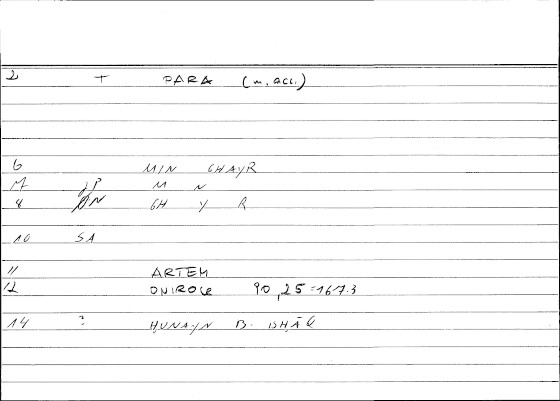 2 + PARA (m. acc.)
6 MIN GHAYR
M N
8 GH Y R
10 SA
11 ARTEM
12 ONIROCR 90,25=167.3
14 ? ḤUNAYN B. ISḤĀQ